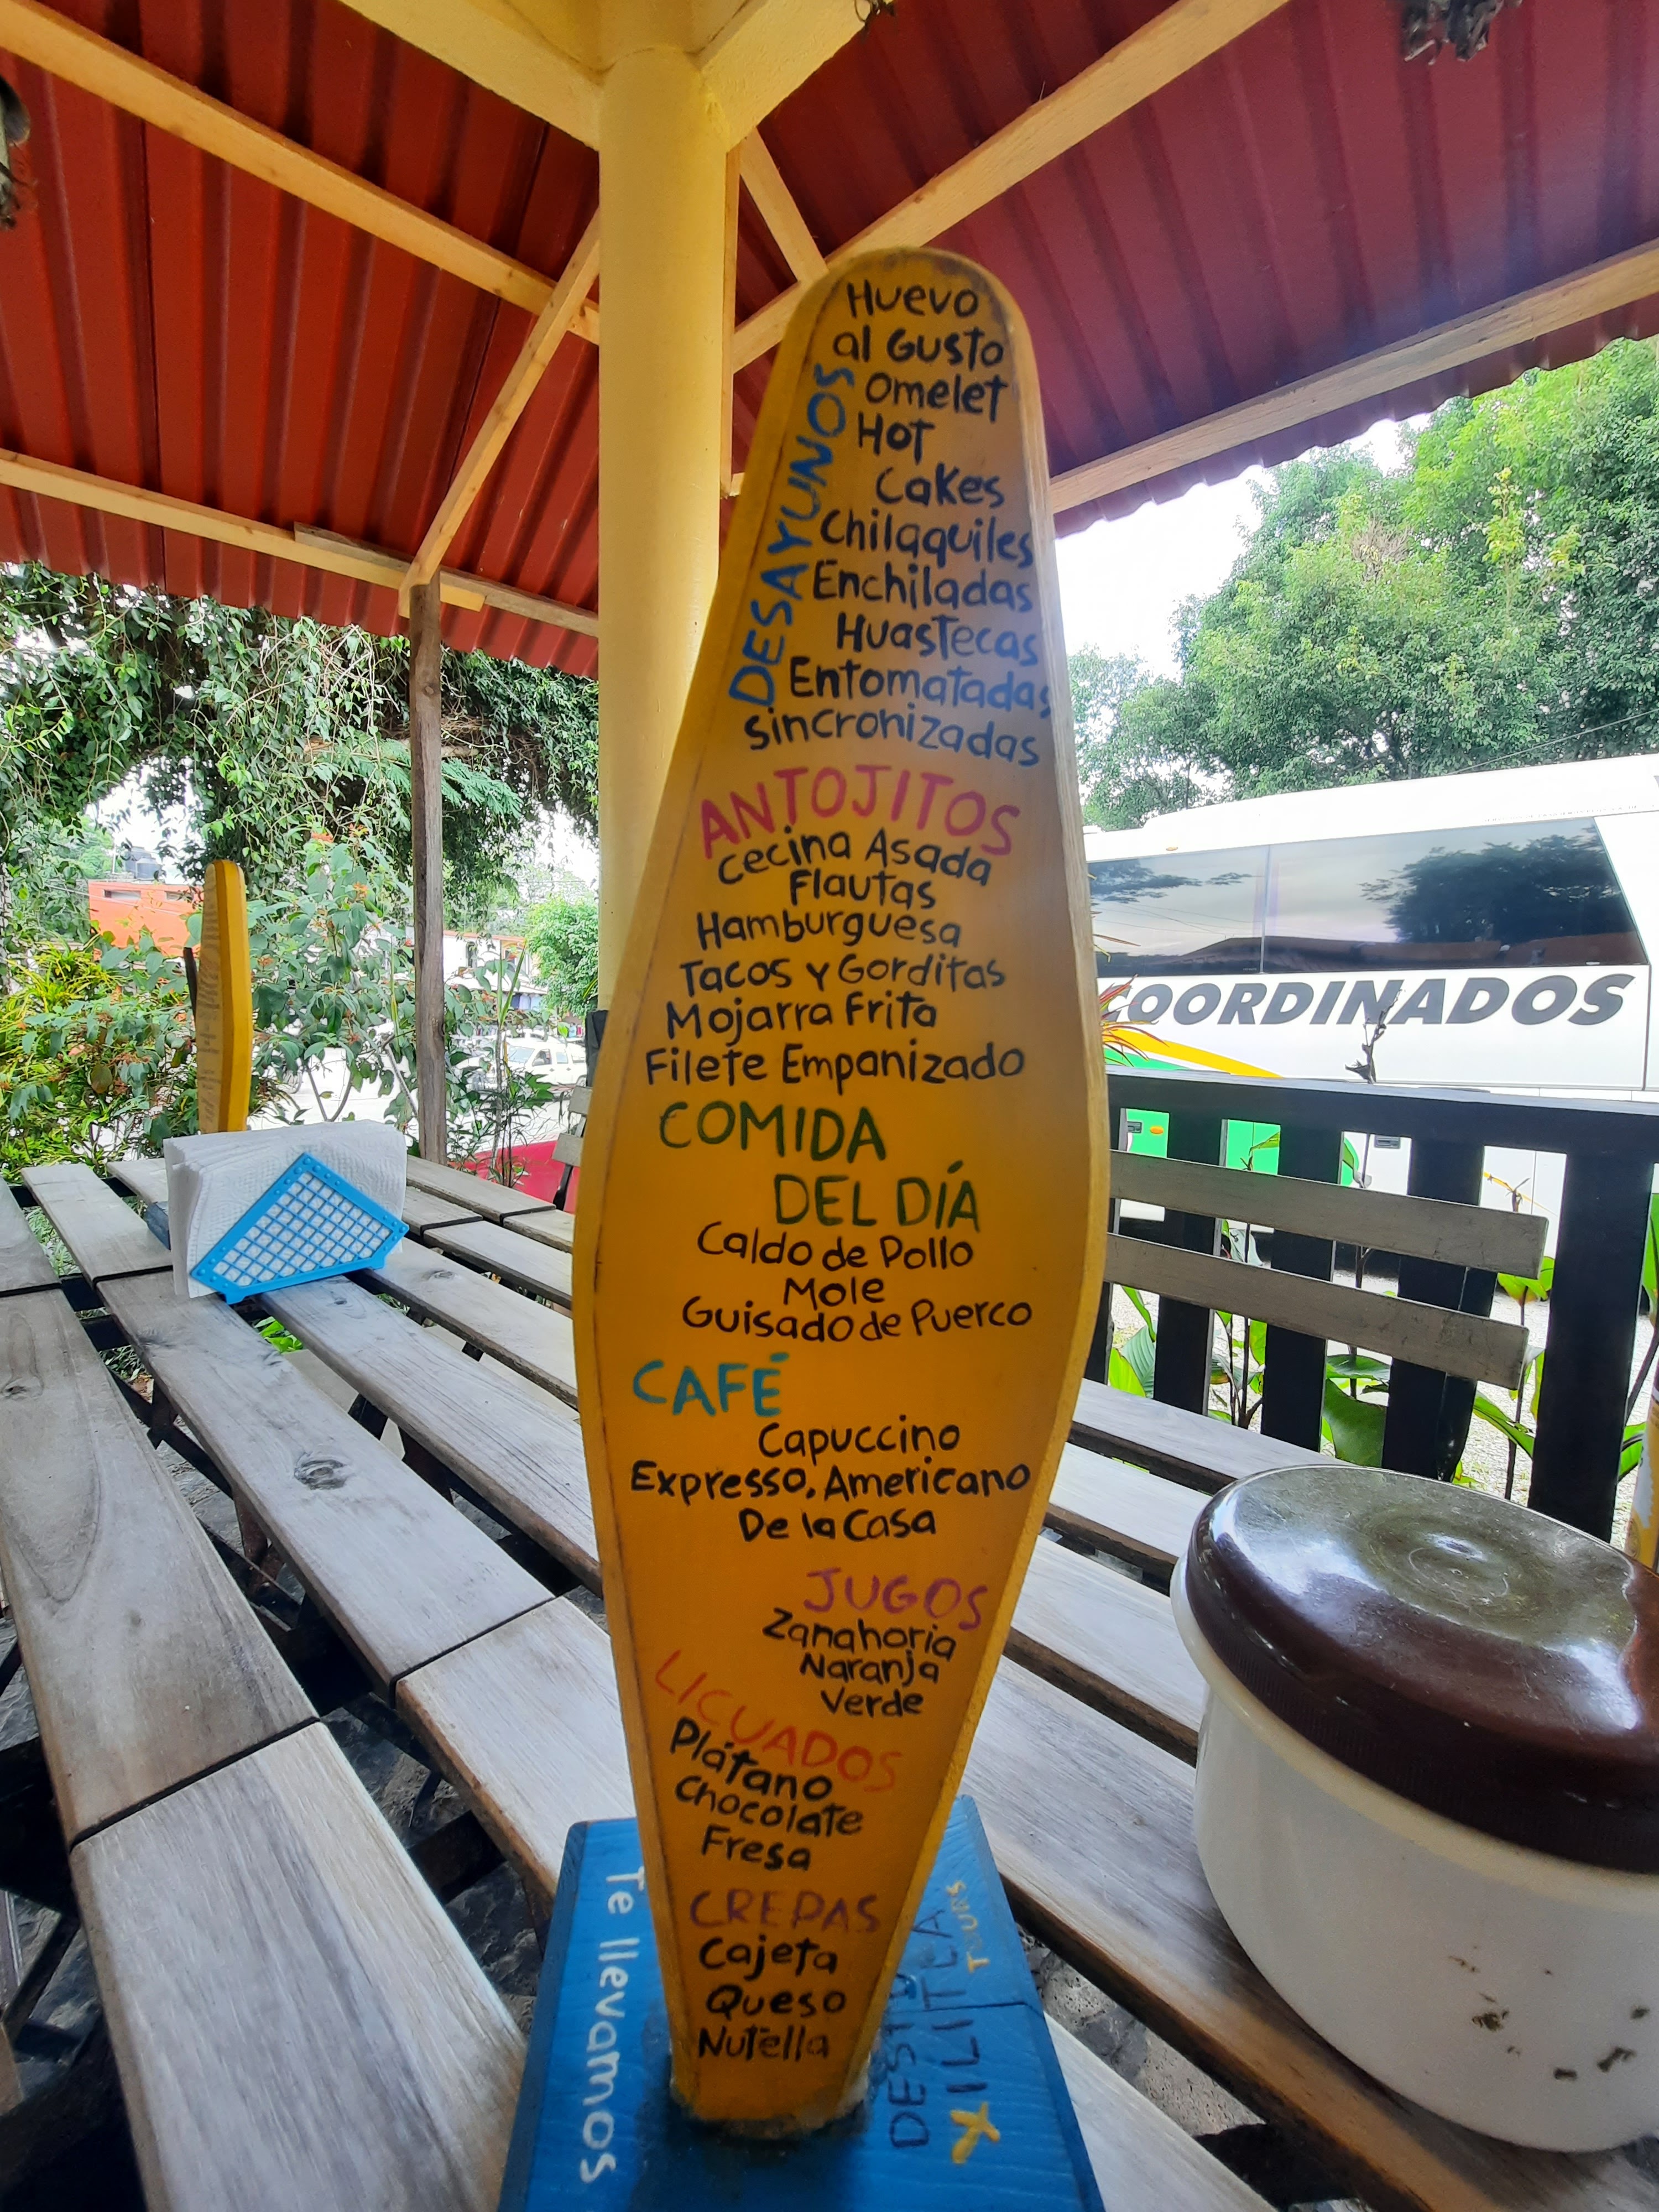 DESAYUNOS
Huevo
al Gusto
Omelet
Hot
Cakes
Chilaquiles
Enchiladas
Huastecas
Entomatadas
Sincronizadas
ANTOJITOS
Cecina Asada
Flautas
Hamburguesa
Tacos y Gorditas
Mojarra Frita
Filete Empanizado
COMIDA
DEL DÍA
Caldo de Pollo
Mole
Guisado de Puerco
CAFÉ
Capuccino
Expresso, Americano
De la Casa
JUGOS
Zanahoria
Naranja
Verde
LICUADOS
Plátano
Chocolate
Fresa
CREPAS
Cajeta
Queso
Nutella
Te llevamos
XILITLA
TOURS
COORDINADOS